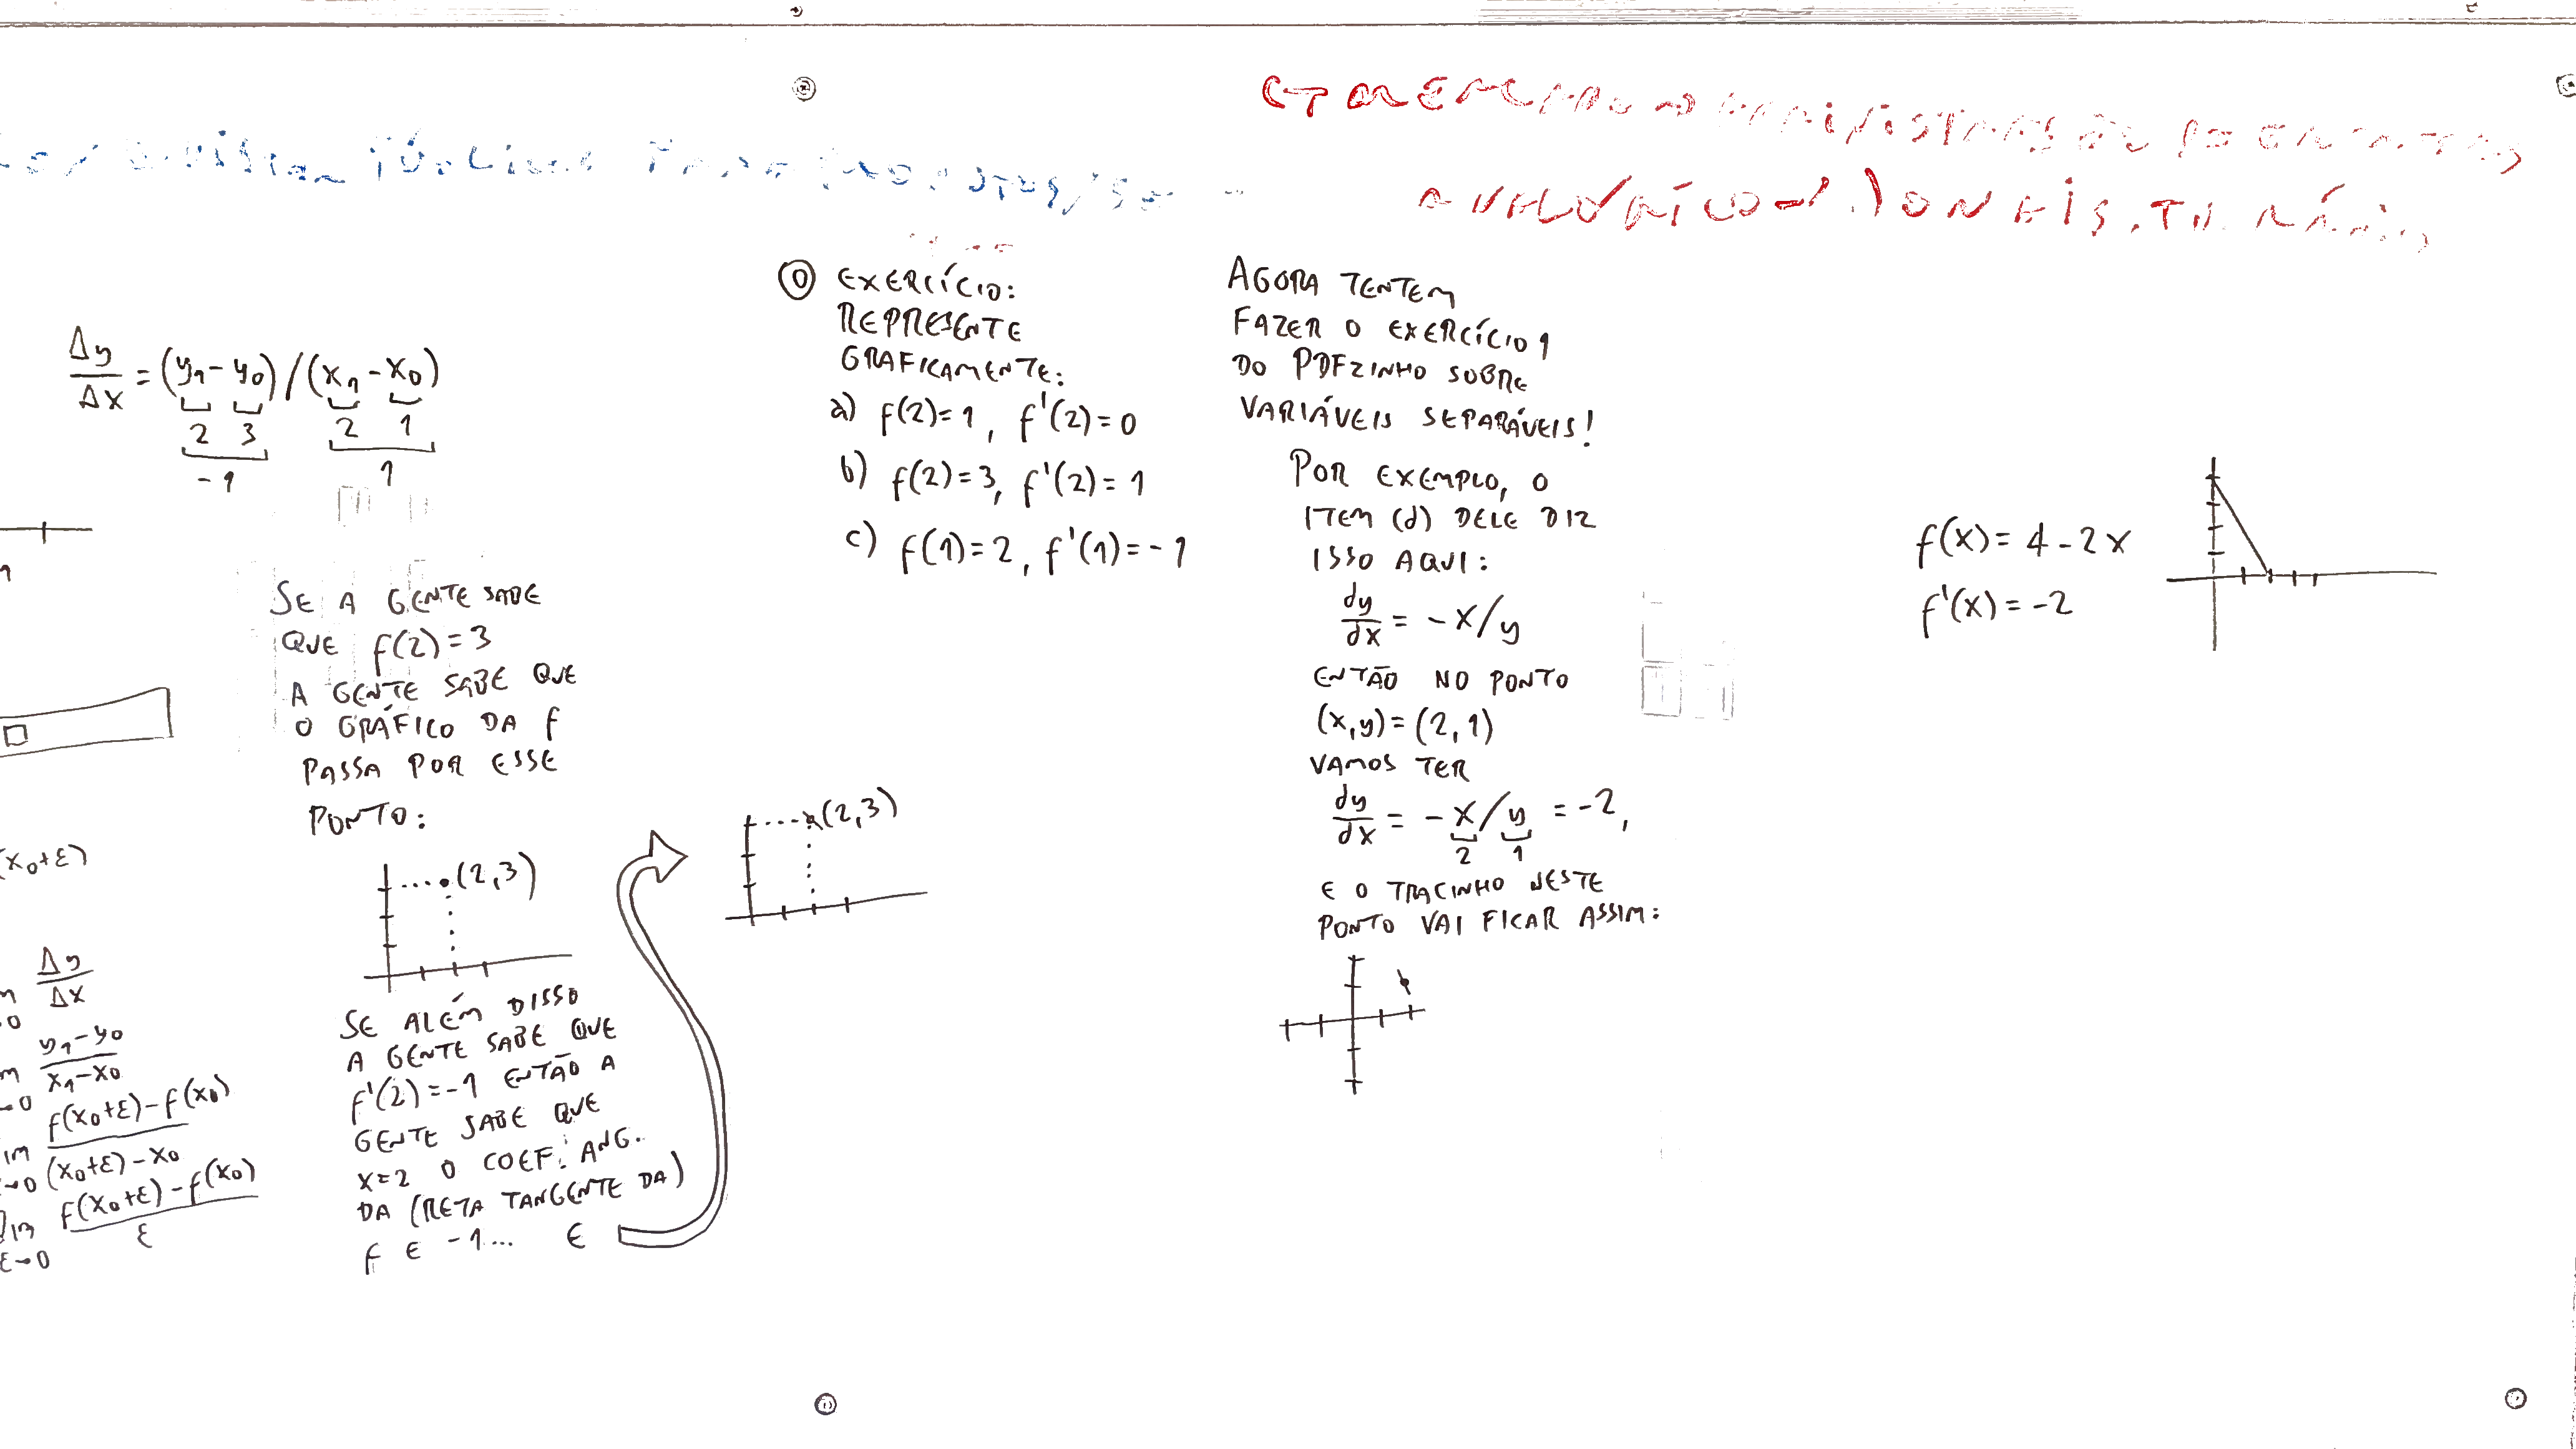 Δy/Δx = (y₁ - y₀) / (x₁ - x₀)
2 3 2 1
-1 1
SE A GENTE SABE
QUE f(2)=3
A GENTE SABE QUE
O GRÁFICO DA f
PASSA POR ESSE
PONTO:
(2,3)
SE ALÉM DISSO
A GENTE SABE QUE
f'(2)=-1 ENTÃO A
GENTE SABE QUE
X=2 O COEF. ANG.
DA (RETA TANGENTE DA)
f É -1... É
(2,3)
(x₀+ε)
Δy/Δx
(y₁-y₀)/(x₁-x₀)
(f(x₀+ε)-f(x₀))/((x₀+ε)-x₀)
lim ε→0 (f(x₀+ε)-f(x₀))/ε
⓪ EXERCÍCIO:
REPRESENTE
GRAFICAMENTE:
a) f(2)=1, f'(2)=0
b) f(2)=3, f'(2)=1
c) f(1)=2, f'(1)=-1
AGORA TENTEM
FAZER O EXERCÍCIO 1
DO PDFZINHO SOBRE
VARIÁVEIS SEPARÁVEIS!
POR EXEMPLO, O
ITEM (d) DELE DIZ
ISSO AQUI:
dy/dx = -x/y
ENTÃO NO PONTO
(x,y)=(2,1)
VAMOS TER
dy/dx = -x/y = -2,
2 1
E O TRACINHO NESTE
PONTO VAI FICAR ASSIM:
f(x)= 4-2x
f'(x)=-2